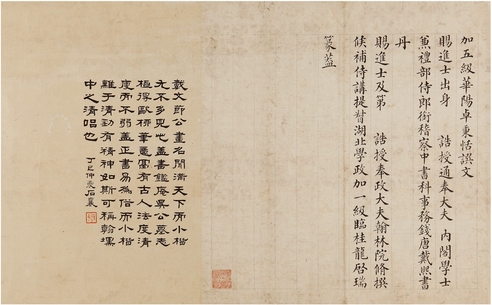 加五級華陽卓秉恬譔文
賜進士出身 誥授通奉大夫 內閣學士
兼禮部侍郎銜稽察中書科事務錢唐戴熙書
丹
賜進士及第 誥授奉政大夫翰林院脩撰
候補侍講提督湖北學政加一級臨桂龍啓瑞
篆蓋
戴文節公畫名聞滿天下而小楷
尤不多見此蓋書鑑庵吳公墓志
極得歐柳筆意富有古人法度清
虛而不弱蓋正書易為俗而小楷
難于清勁有精神如斯可稱翰墨
中之清唱也 丁巳仲夏石襄